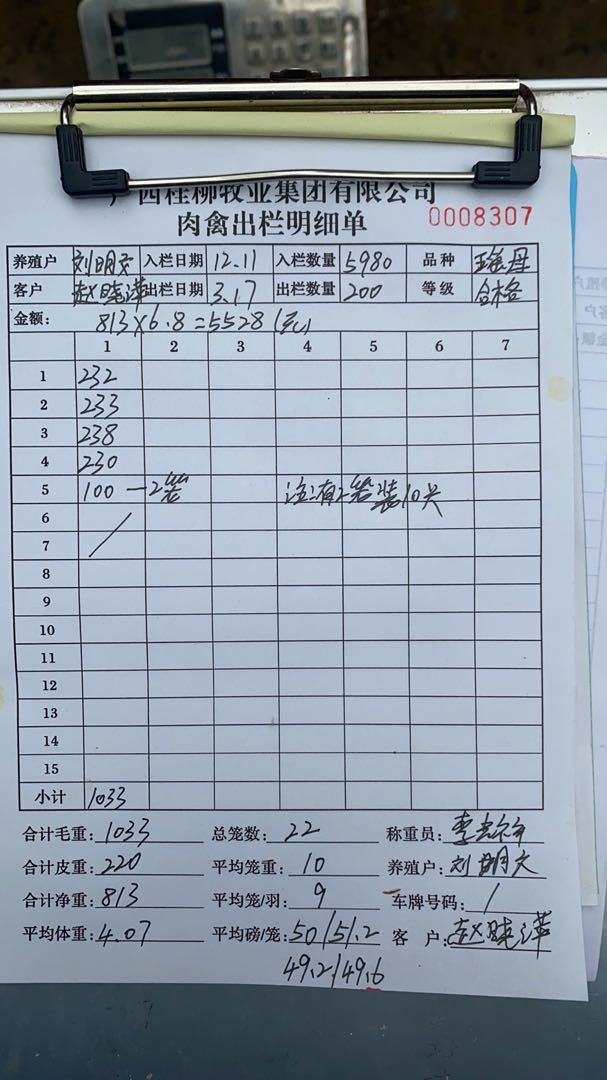 西桂柳牧业集团有限公司
肉禽出栏明细单 0008307
养殖户 刘明文 入栏日期 12.11 入栏数量 5980 品种 瑶母
客户 赵晓萍 出栏日期 3.17 出栏数量 200 等级 合格
金额: 813×6.8=5528(元)
1 2 3 4 5 6 7
1 232
2 233
3 238
4 230
5 100—2笼 注:有2笼装10只
6
7
8
9
10
11
12
13
14
15
小计 1033
合计毛重: 1033 总笼数: 22 称重员:
合计皮重: 220 平均笼重: 10 养殖户: 刘明文
合计净重: 813 平均笼/羽: 9 车牌号码: /
平均体重: 4.07 平均磅/笼: 50/51.2 客户: 赵晓萍
49.2/49.6